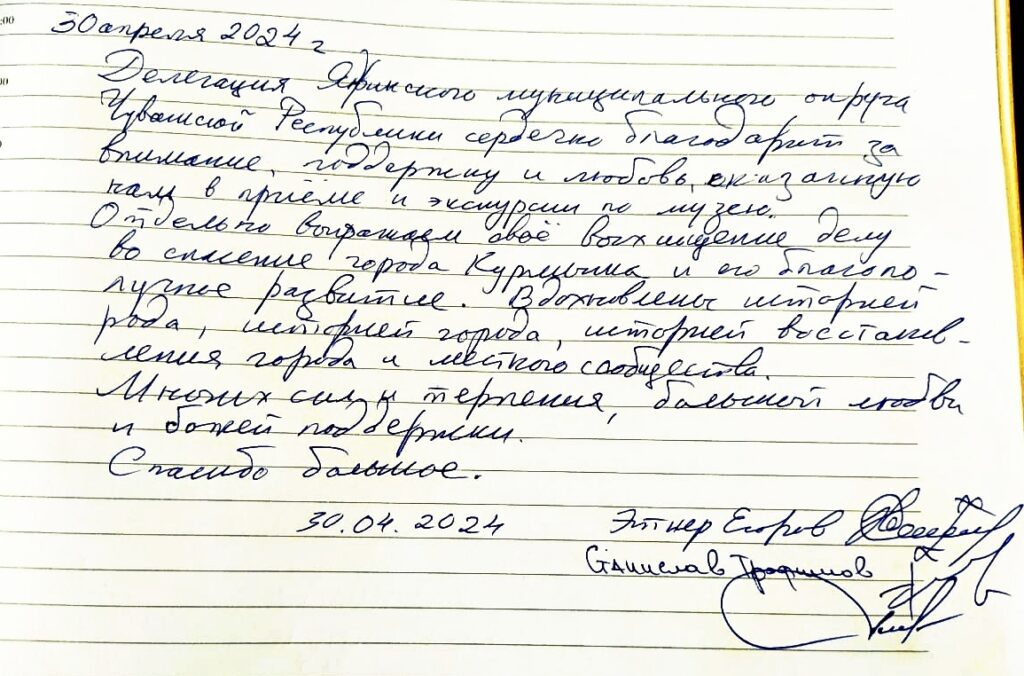 30 апреля 2024 г
Делегация Яльчикского муниципального округа
Чувашской Республики сердечно благодарит за
внимание, поддержку и любовь, оказанную
нам в приёме и экскурсии по музею.
Отдельно выражаем своё восхищение делу
во спасение города Курмыша и его благопо-
лучное развитие. Вдохновлены историей
рода, историей города, историей восстанов-
ления города и местного сообщества.
Многих сил и терпения, большой любви
и божей поддержки.
Спасибо большое.
30.04.2024 Этнер Егоров
Станислав Трофимов